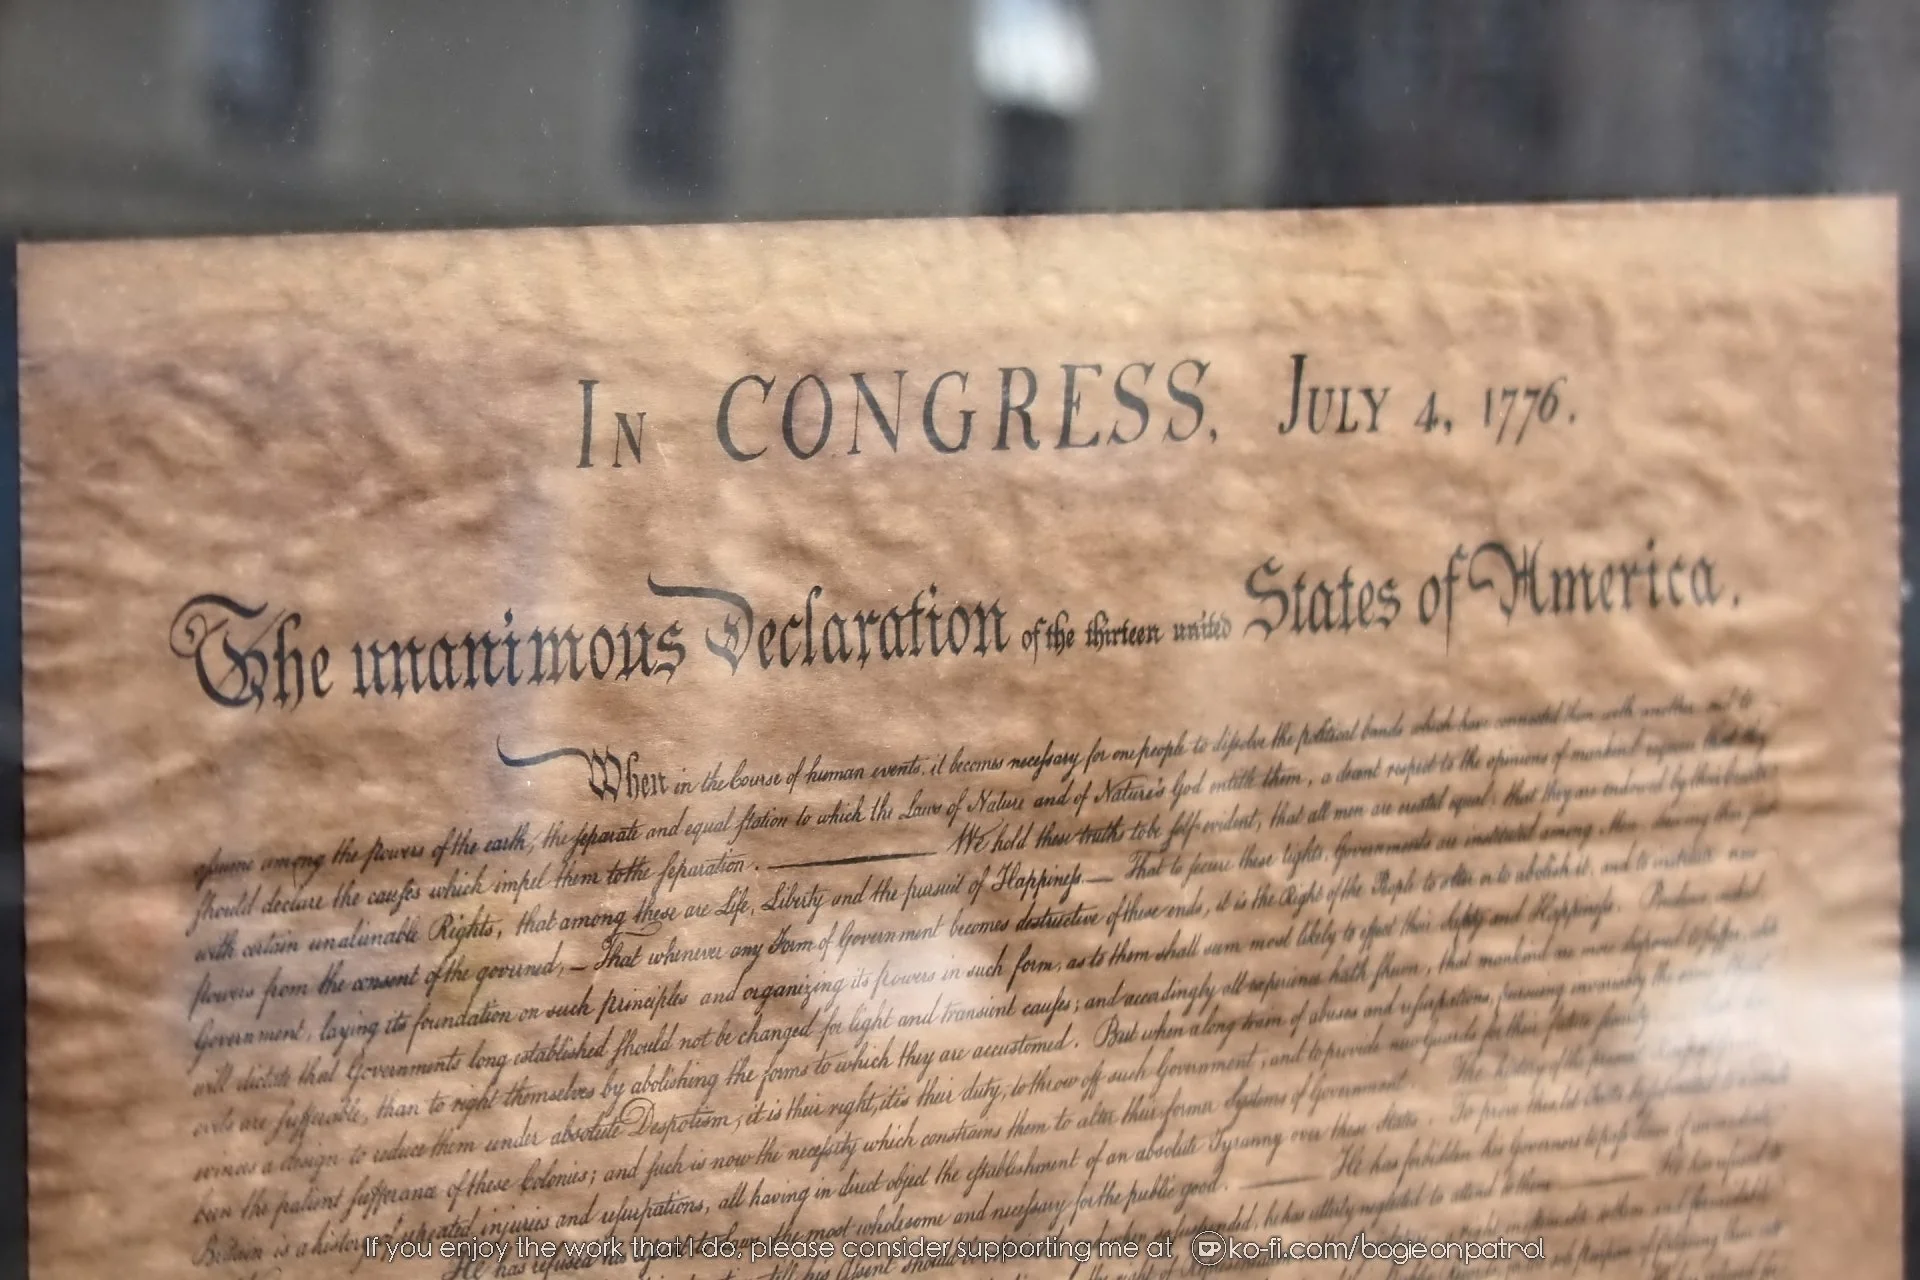 In CONGRESS, July 4, 1776.
The unanimous Declaration of the thirteen united States of America.
When in the Course of human events, it becomes necessary for one people to dissolve the political bands which have connected them with another, and to
assume among the powers of the earth, the separate and equal station to which the Laws of Nature and of Nature's God entitle them, a decent respect to the opinions of mankind requires that they
should declare the causes which impel them to the separation. — We hold these truths to be self-evident, that all men are created equal, that they are endowed by their Creator
with certain unalienable Rights, that among these are Life, Liberty and the pursuit of Happiness. — That to secure these rights, Governments are instituted among Men, deriving their just
powers from the consent of the governed, — That whenever any Form of Government becomes destructive of these ends, it is the Right of the People to alter or to abolish it, and to institute new
Government, laying its foundation on such principles and organizing its powers in such form, as to them shall seem most likely to effect their Safety and Happiness. Prudence, indeed,
will dictate that Governments long established should not be changed for light and transient causes; and accordingly all experience hath shewn, that mankind are more disposed to suffer, while
evils are sufferable, than to right themselves by abolishing the forms to which they are accustomed. But when a long train of abuses and usurpations, pursuing invariably the same
evinces a design to reduce them under absolute Despotism, it is their right, it is their duty, to throw off such Government, and to provide new Guards for their future security
been the patient sufferance of these Colonies; and such is now the necessity which constrains them to alter their former Systems of Government. The history of the present
Britain is a history of repeated injuries and usurpations, all having in direct object the establishment of an absolute Tyranny over these States. To prove this let Facts be submitted
He has refused his Assent to Laws, the most wholesome and necessary for the public good. — He has forbidden his Governors to pass Laws of immediate
till his Assent should be suspended, he has utterly neglected to attend to them. — He has refused to
the right of Representation
If you enjoy the work that I do, please consider supporting me at ko-fi.com/bogieonpatrol